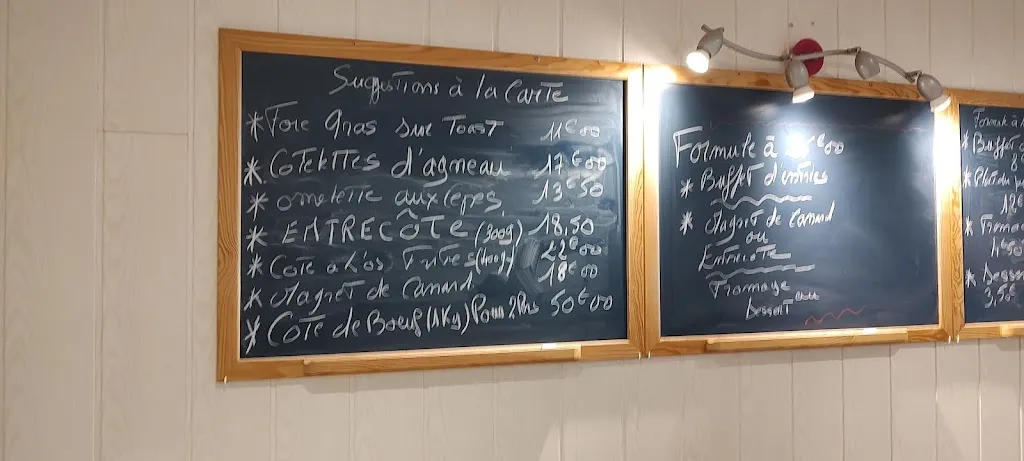 Suggestions à la Carte
* Foie Gras sur Toast 11€00
* COTELETTES d'agneau 17€00
* omelette aux cèpes 13€50
* ENTRECÔTE (300g) 18,50
* Côte à L'os Frites (400g) 22€00
* Magret de Canard 18€00
* Côte de Boeuf (1Kg) Pour 2 Prs 50€00
Formule à €00
* Buffet d'entrées
* Magret de Canard
ou
Entrecôte
Fromage
Dessert
Formule à
* Buffet
8
* Plat du
12€
* Fromage
4€50
* Dessert
3,50